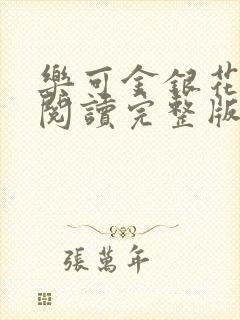 樂可金銀花
閱讀完整版
張萬年